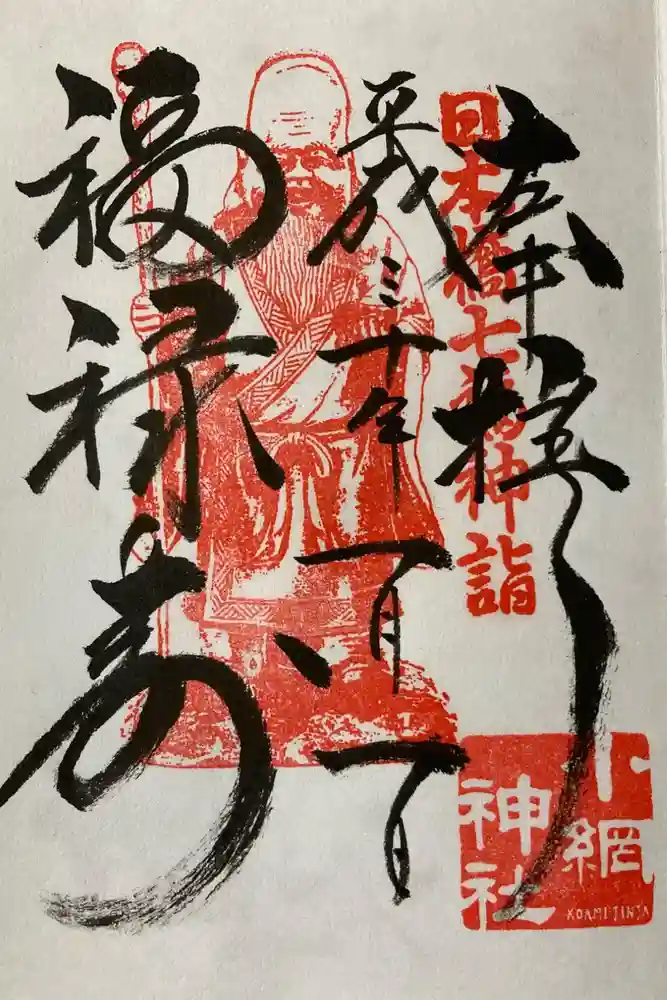 奉拝
日本橋七福神詣
平成三十年一月一日
福禄寿
小網
神社
KOAMI JINJA